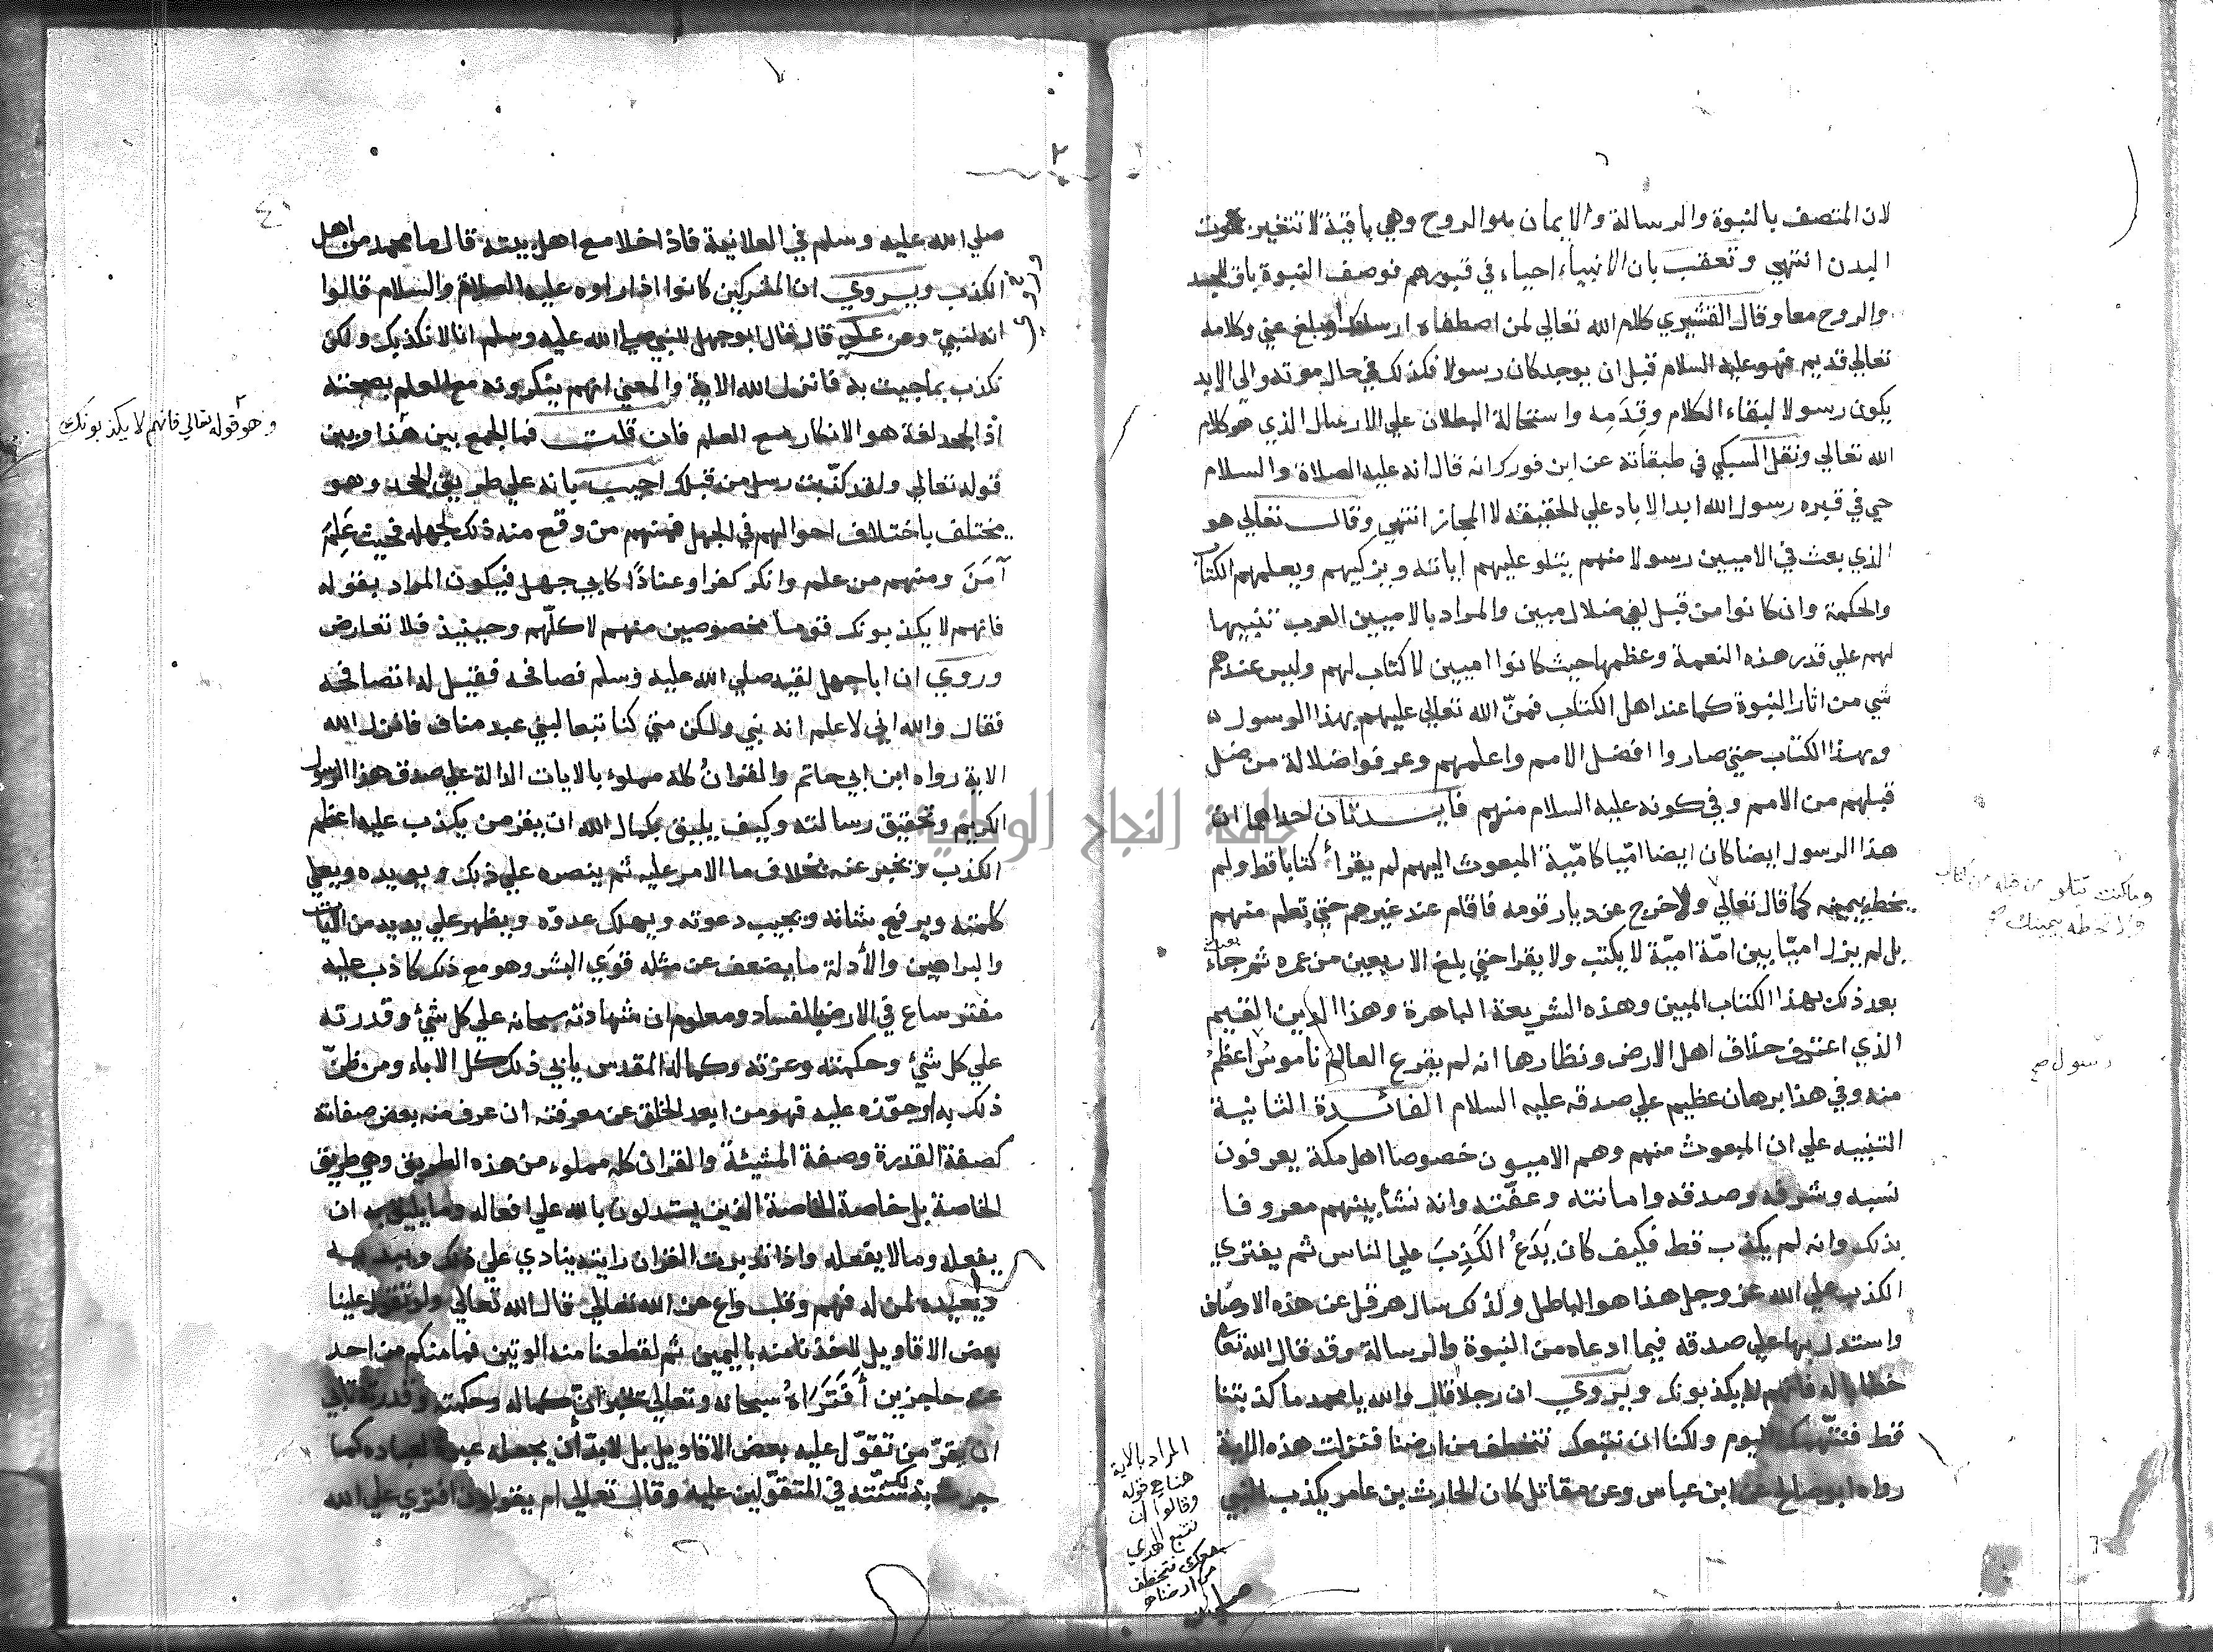 لان المتصف بالنبوة والرسالة والايمان هو الروح وهي باقية لا تتغير بموت
البدن انتهي وتعقب بان الانبياء احياء في قبورهم فوصف النبوة باق للجسد
والروح معا وقال القشيري كلام الله تعالي لمن اصطفاه ارسلتك او بلغ عني وكلامه
تعالي قديم فهو عليه السلام قبل ان يوجد كان رسولا فكذلك في حال موته والي الابد
يكون رسولا لبقاء الكلام وقِدَمِه واستحالة البطلان علي الارسال الذي هو كلام
الله تعالي ونقل السبكي في طبقاته عن ابن فورك انه قال انه عليه الصلاة والسلام
حي في قبره رسول الله ابد الاباد علي الحقيقة لا المجاز انتهي وقال تعالي هو
الذي بعث في الاميين رسولا منهم يتلو عليهم اياته ويزكيهم ويعلمهم الكتاب
والحكمة وان كانوا من قبل لفي ضلال مبين والمراد بالاميين العرب تنبيها
لهم علي قدر هذه النعمة وعظمها حيث كانوا اميين لا كتاب لهم وليس عندهم
شي من اثار النبوة كما عند اهل الكتاب فمنّ الله تعالي عليهم بهذا الرسول
وبهذا الكتاب حتي صاروا افضل الامم واعلمهم وعرفوا ضلالة من ضل
قبلهم من الامم وفي كونه عليه السلام منهم فايدتان احداهما ان
هذا الرسول ايضا كان ايضا امّيا كامّية المبعوث اليهم لم يقرأ كتابا قط ولم
يخطه بيمينه كما قال تعالي ولا خرج عن ديار قومه فاقام عند غيرهم حتي تعلم منهم
بل لم يزل اميّا بين امّة اميّة لا يكتب ولا يقرا حتي بلغ الاربعين من عمره ثم جاء
بعد ذلك بهذا الكتاب المبين وهذه الشريعة الباهرة وهذا الدين القيم
الذي اعترف حذاق اهل الارض ونظارها انه لم يقرع العالم ناموسٌ اعظمُ
منه وفي هذا برهان عظيم علي صدقه عليه السلام الفائدة الثانية
التنبيه علي ان المبعوث منهم وهم الاميون خصوصا اهل مكة يعرفون
نسبه وشرفه وصدقه وامانته وعفّته وانه نشأ بينهم معروفا
بذلك وانه لم يكذب قط فكيف كان يَدَعُ الكَذِبَ علي الناس ثم يفتري
الكذب علي الله عز وجل هذا هو الباطل ولذلك سال هرقل عن هذه الاوصاف
واستدل بها علي صدقه فيما ادعاه من النبوة والرسالة وقد قال الله تعا
خطابا له فانهم لا يكذبونك ويروي ان رجلا قال والله يا محمد ما كذبتنا
قط فنتّهمك اليوم ولكنا ان نتبعك نتخطف من ارضنا فنزلت هذه الاية
رواه ابو صالح عن ابن عباس وعن مقاتل كان الحارث بن عامر يكذب النبي
وما كنت تتلو من قبله من كتاب
ولا تخطه بيمينك صح
رسول صح
المراد بالاية
هنا هي قوله
وقالوا ان
نتبع الهدي
معك نتخطف
من ارضنا
صلي الله عليه وسلم في العلانية فاذا خلا مع اهل بيته قال ما محمد من اهل
الكذب ويروي ان المشركين كانوا اذا راوه عليه الصلاة والسلام قالوا
انه لنبيّ وعن علي قال قال ابو جهل للنبي صلي الله عليه وسلم انا لا نكذبك ولكن
نكذب بما جيت به فانزل الله الاية والمعني انهم ينكرونه مع العلم بصحته
اذ الجحد لغة هو الانكار مع العلم فان قلت فما الجمع بين هذا وبين
قوله تعالي ولقد كذّبت رسل من قبلك اجيب بانه علي طريق الجحد وهو
مختلف باختلاف احوالهم في الجهل فمنهم من وقع منه ذلك لجهله فحيث عَلِمَ
آمَنَ ومنهم من علم وانكر كفرا وعنادًا كابي جهل فيكون المراد بقوله
فانهم لا يكذبونك قوما مخصوصين منهم لا كلّهم وحينيذ فلا تعارض
وروي ان ابا جهل لقيه صلي الله عليه وسلم فصافحه فقيل له اتصافحه
فقال والله اني لاعلم انه نبي ولكن متي كنا تبعا لبني عبد مناف فانزل الله
الاية رواه ابن ابي حاتم والقرانُ كله مملوء بالايات الدالة علي صدق هذا الرسول
الكريم وتحقيق رسالته وكيف يليق بكمال الله ان يقر من يكذب عليه اعظم
الكذب ويخبر عنه بخلاف ما الامر عليه ثم ينصره علي ذلك ويويده ويعلي
كلمته ويرفع شانه ويجيب دعوته ويهلك عدوّه ويظهر علي يديه من الايات
والبراهين والأدلة ما يضعف عن مثله قوي البشر وهو مع ذلك كاذب عليه
مفتر ساع في الارض بالفساد ومعلوم ان شهادته سبحانه علي كل شيء وقدرته
علي كل شيء وحكمته وعزته وكماله المقدس يابي ذلك كل الاباء ومن ظنّ
ذلك به او جوّزه عليه فهو من ابعد الخلق عن معرفته ان عرف منه بعض صفاته
كصفة القدرة وصفة المشيئة والقران كله مملوء من هذه الطريق وهي طريق
الخاصة بل خاصة الخاصة الذين يستدلون بالله علي افعاله وما يليق به ان
يفعله وما لا يفعله واذا تدبرت القران رايته ينادي علي ذلك ويبديه
ويعيده لمن له فهم وقلب واع عن الله تعالي قال الله تعالي ولو تقول علينا
بعض الاقاويل لاخذنا منه باليمين ثم لقطعنا منه الوتين فما منكم من احد
عنه حاجزين أَفَتَرَاهُ سبحانه وتعالي يخبر انّ كماله وحكمته وقدرته تابي
ان يقرّ من تقوّل عليه بعض الاقاويل بل لابدّ أن يجعله عبرة لعباده كما
جرت بذلك سنّته في المتقوّلين عليه وقال تعالي ام يقولون افتري علي الله
وهو قوله تعالي فانهم لا يكذبونك
جامعة النجاح الوطنية